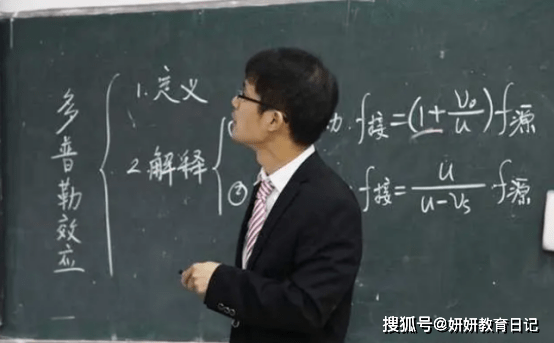 多普勒效应
1.定义
2.解释
① 动.f接=(1+v₀/u)f源
② f接=u/(u-vₛ) f源
搜狐号@妍妍教育日记